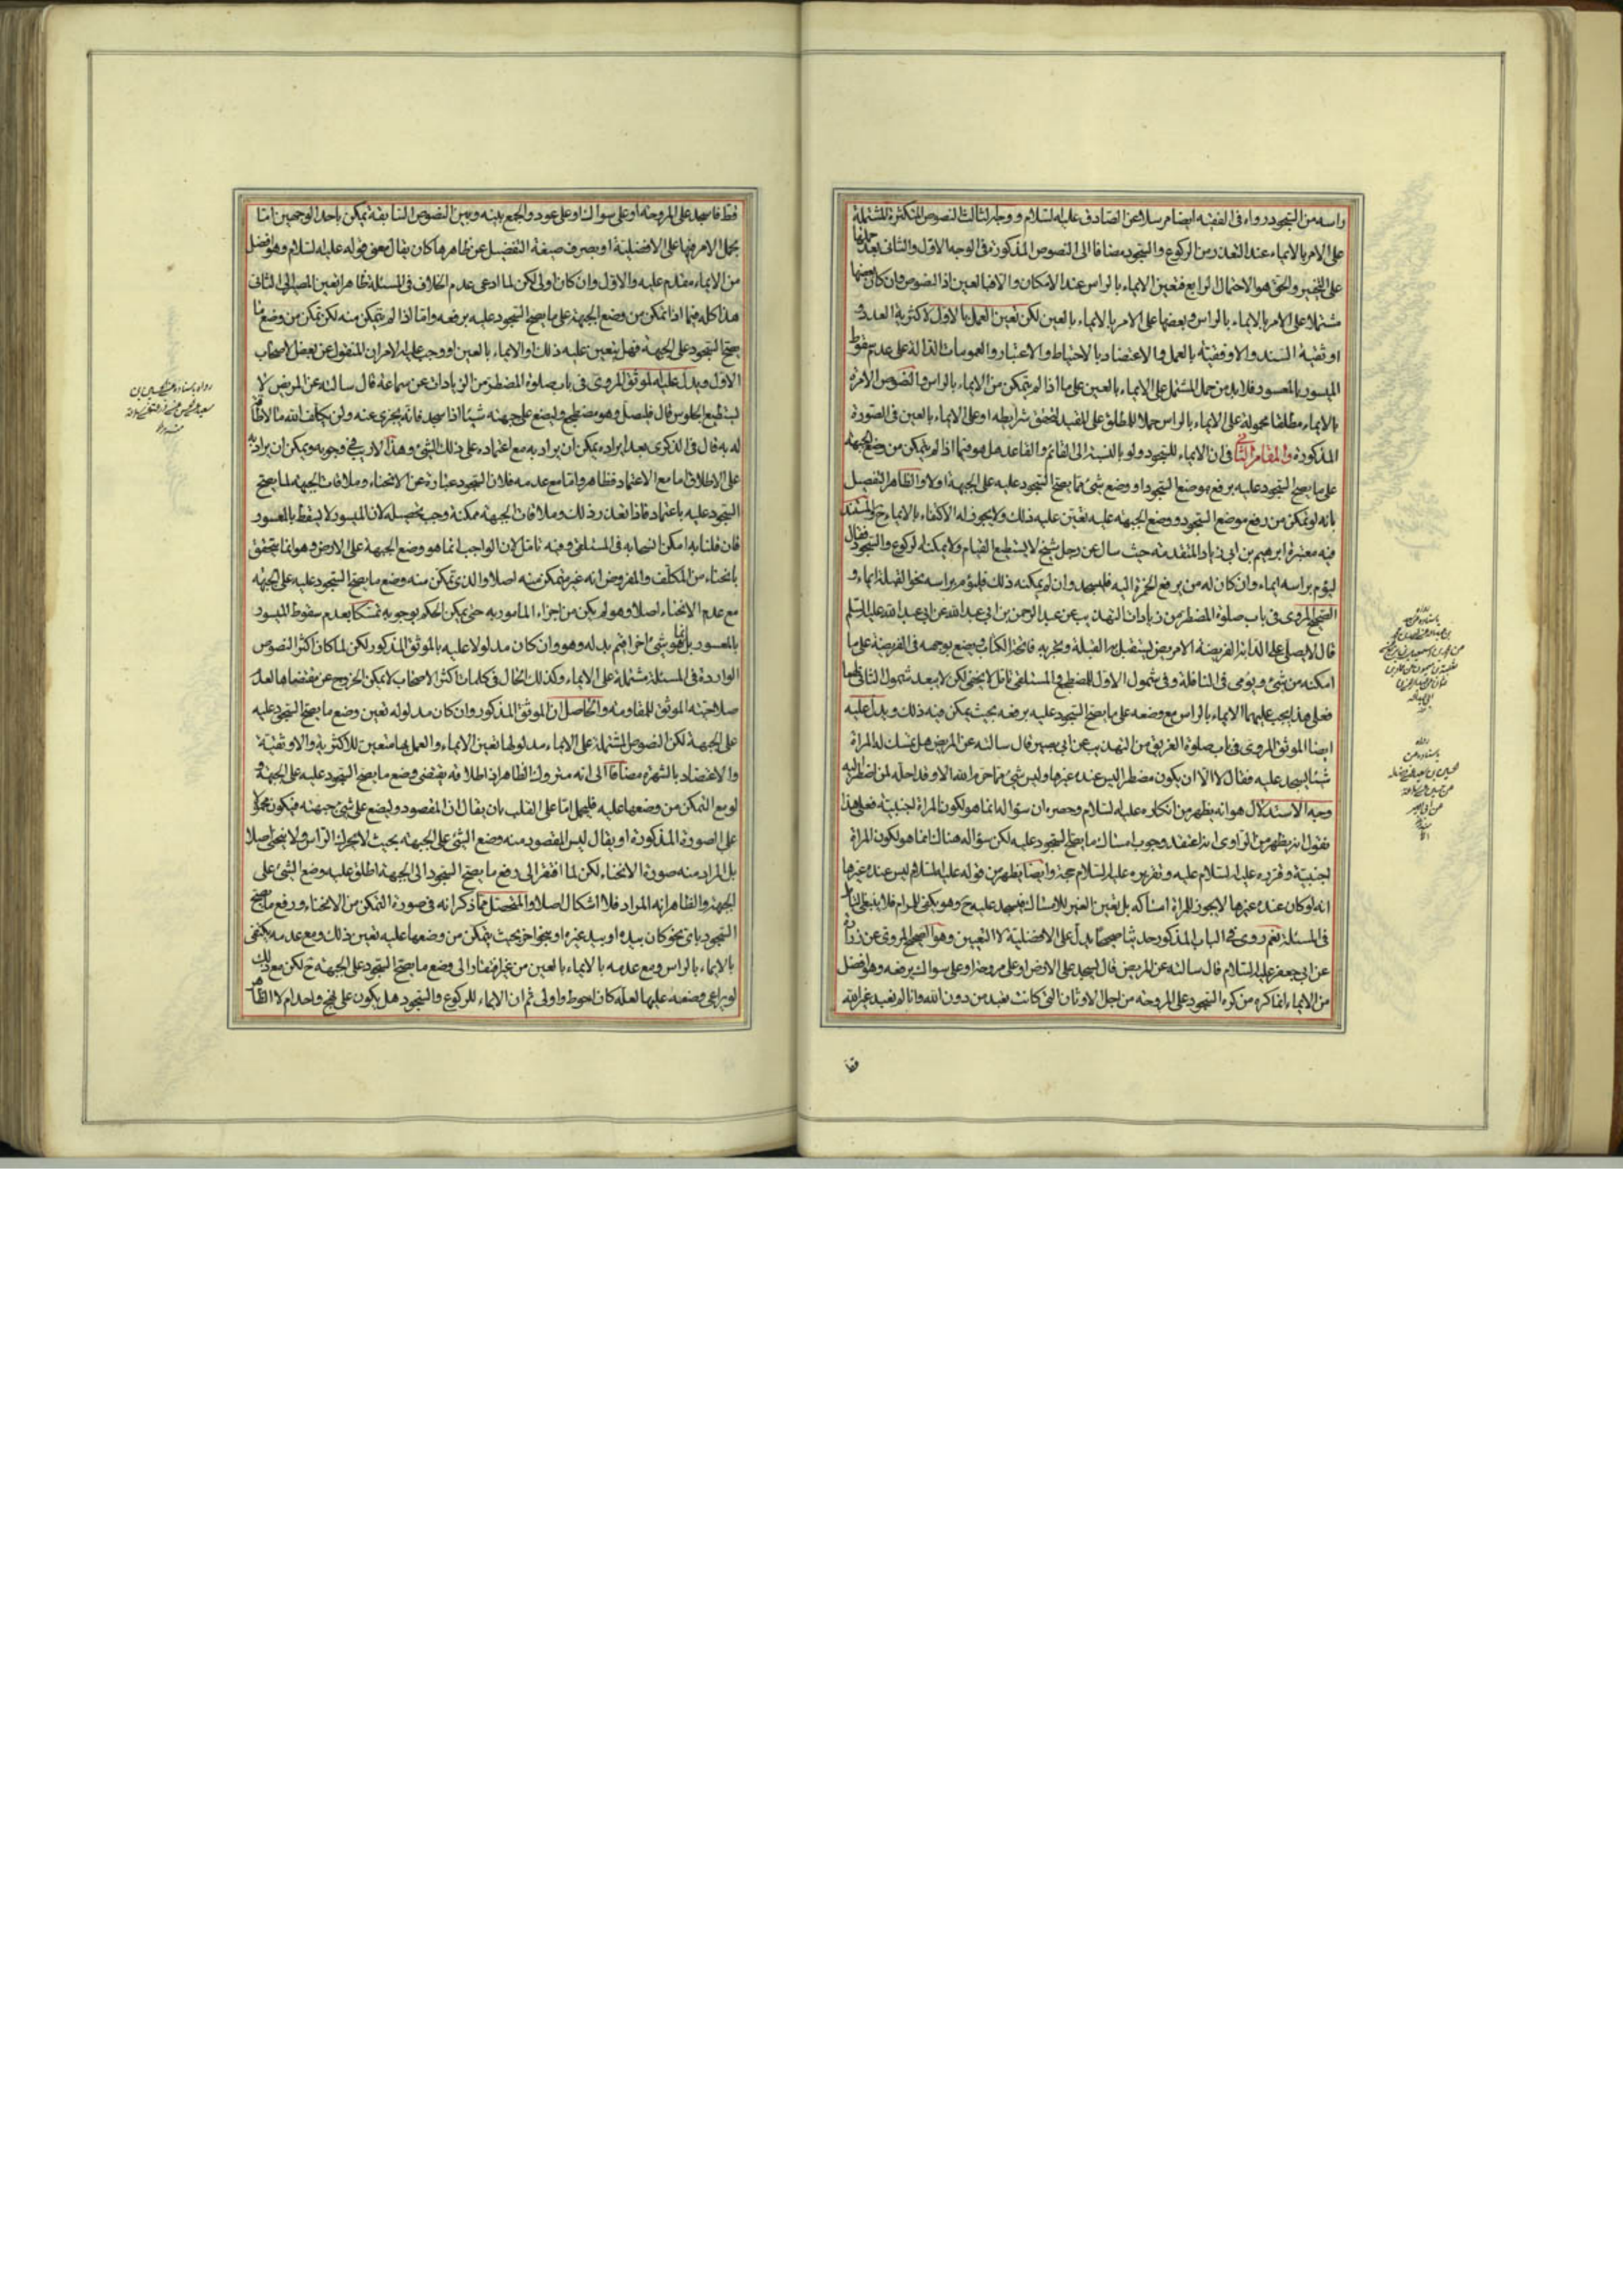 راسه من السجود رواه فى الفقيه ايضا مرسلا عن الصادق عليه السلام ووجه الثالث النصوص المتكثرة المشتملة
على الامر بالايماء عند التعذر من الركوع والسجود مضافا الى النصوص المذكورة فى الوجه الاول والثانى بعد حملها
على التخيير والحق هو الاحتمال الرابع فتعين الايماء بالراس عند الامكان والا فبالعين اذ النصوص وان كان بعضها
مشتملا على الامر بالايماء بالراس وبعضها على الامر بالايماء بالعين لكن تعين العمل بالاول لاكثرية العدد و
اوثقية السند والاوفقية بالعمل والاعتضاد بالاحتياط والاعتبار والعمومات الدالة على عدم سقوط
الميسور بالمعسور فلابد من حمل المشتمل على الايماء بالعين على ما اذا لم يتمكن من الايماء بالراس والنصوص الامرة
بالايماء مطلقا محمولة على الايماء بالراس حملا للمطلق على المقيد لتحقق شرايطه او على الايماء بالعين فى الصورة
المذكورة والمقام الثانى فى ان الايماء للسجود ولو بالنسبة الى القائم والقاعد هل هو فيما اذا لم يتمكن من وضع الجبهة
على ما يصح السجود عليه برفع موضع السجود او وضع شئ مما يصح السجود عليه على الجبهة اولا والظاهر التفصيل
بانه لو تمكن من رفع موضع السجود ووضع الجبهة عليه تعين عليه ذلك ولا يجوز له الاكتفاء بالايماء ح والمستند
فيه معتبرة ابرهيم بن ابى زياد المتقدمة حيث سال عن رجل شيخ لا يستطيع القيام ولا يمكنه الركوع والسجود فقال
ليؤم براسه ايماء وان كان له من يرفع الخمرة اليه فليسجد وان لم يمكنه ذلك فليؤم براسه نحو القبلة ايماء و
الصحيح المروى فى باب صلوة المضطر من زيادات التهذيب عن عبد الرحمن بن ابى عبد الله عن ابى عبد الله عليه السلم
قال لا يصلى على الدابة الفريضة الا مريض يستقبل به القبلة ويجزيه فاتحة الكتاب ويضع بوجهه فى الفريضة على ما
امكنه من شئ ويومى فى النافلة وفى شمول الاول للمضطجع والمستلقى تامل لا يخفى لكن لا يبعد شمول الثانى لهما
فعلى هذا يجب عليهما الايماء بالراس مع وضعه على ما يصح السجود عليه برفعه بحيث يمكن فيه ذلك ويدل عليه
ايضا الموثق المروى فى باب صلوة الغريق من التهذيب عن ابى بصير قال سالته عن المريض هل تمسك له المراة
شيئا يسجد عليه فقال لا الا ان يكون مضطرا ليس عنده غيرها وليس شئ مما حرم الله الا وقد احله لمن اضطر اليه
وجه الاستدلال هو انه يظهر من انكاره عليه السلام وحصره ان سؤاله انما هو لكون المراة اجنبية فعلى هذا
نقول انه يظهر من الراوى انه اعتقد وجوب امساك ما يصح السجود عليه لكن سؤاله هناك انما هو لكون المراة
اجنبية وقرره عليه السلام عليه وتقريره عليه السلام حجة وايضا يظهر من قوله عليه السلام ليس عنده غيرها
انه لو كان عنده غيرها لا يجوز للمراة امساكه بل تعين الغير للامساك فيسجد عليه ح وهو يكفى للمرام فلا ينبغى التامل
فى المسئلة نعم روى فى الباب المذكور حديثا صحيحا يدل على الافضلية لا التعيين وهو الصحيح المروى عن زرارة
عن ابى جعفر عليه السلام قال سالته عن المريض قال يسجد على الارض او على مروحة او على سواك يرفعه وهو افضل
من الايماء انما كره من كره السجود على المروحة من اجل الاوثان التى كانت تعبد من دون الله وانا لم نعبد غير الله
قط
قط فاسجد على المروحة او على سواك او على عود والجمع بينه وبين النصوص السابقة يمكن باحد الوجهين اما
بحمل الامر فيها على الافضلية او بصرف صيغة التفضيل عن ظاهرها كان يقال معنى قوله عليه السلام وهو افضل
من الايماء مقدم عليه والاول وان كان اولى لكن لما ادعى عدم الخلاف فى المسئلة ظاهرا تعين المصير الى الثانى
هذا كله فيما اذا تمكن من وضع الجبهة على ما يصح السجود عليه برفعه واما اذا لم يتمكن منه لكن تمكن من وضع ما
يصح السجود على الجبهة فهل يتعين عليه ذلك او الايماء بالعين او وجب عليه الامران المنقول عن بعض الاصحاب
الاول ويدل عليه الموثق المروى فى باب صلوة المضطر من الزيادات عن سماعة قال سالته عن المريض لا
يستطيع الجلوس قال فليصل وهو مضطجع وليضع على جبهته شيئا اذا سجد فانه يجزى عنه ولن يكلف الله ما لا طاقة
له به قال فى الذكرى بعد ايراده يمكن ان يراد به مع اعتماده على ذلك الشئ وهذا لا ريب فى وجوبه ويمكن ان يراد به
على الاطلاق اما مع الاعتماد فظاهر واما مع عدمه فلان السجود عبارة عن الانحناء وملاقات الجبهة لما يصح
السجود عليه باعتماد فاذا تعذر ذلك وملاقات الجبهة ممكنة وجب تحصيله لان الميسور لا يسقط بالمعسور
فان قلنا به امكن انسحابه فى المستلقى وفيه تامل لان الواجب انما هو وضع الجبهة على الارض وهو انما يتحقق
بانحناء من المكلف والمفروض انه غير متمكن منه اصلا والذى تمكن منه وضع ما يصح السجود عليه على الجبهة
مع عدم الانحناء اصلا وهو لم يكن من اجزاء المامور به حتى يمكن الحكم بوجوبه تمسكا بعدم سقوط الميسور
بالمعسور بل انما هو شئ اخر اقيم بدله وهو وان كان مدلولا عليه بالموثق المذكور لكن لما كان اكثر النصوص
الواردة فى المسئلة مشتملة على الايماء وكذلك الحال فى كلمات اكثر الاصحاب لا يمكن الخروج عن مقتضاها لعدم
صلاحيته الموثق للمقاومة والحاصل ان الموثق المذكور وان كان مدلوله تعين وضع ما يصح السجود عليه
على الجبهة لكن النصوص المشتملة على الايماء مدلولها تعين الايماء والعمل بها متعين للاكثرية والاوثقية
والاعتضاد بالشهرة مضافا الى انه متروك الظاهر اذ اطلاقه يقتضى وضع ما يصح السجود عليه على الجبهة و
لو مع التمكن من وضعها عليه فليحمل اما على القلب بان يقال ان المقصود وليضع على شئ جبهته فيكون محمولا
على الصورة المذكورة او يقال ليس المقصود منه وضع الشئ على الجبهة بحيث لا يتحرك الراس ولا ينحنى اصلا
بل المراد منه صورة الانحناء لكن لما افتقر الى رفع ما يصح السجود الى الجبهة اطلق عليه وضع الشئ على
الجبهة والظاهر انه المراد فلا اشكال اصلا والمتحصل مما ذكر انه فى صورة التمكن من الانحناء ورفع ما يصح
السجود باى نحو كان بيده او بيد غيره او بنحو اخر بحيث يتمكن من وضعها عليه تعين ذلك ومع عدمه يكتفى
بالايماء بالراس ومع عدمه بالايماء بالعين من غير افتقار الى وضع ما يصح السجود على الجبهة ح لكن مع ذلك
لو يراعى وضعه عليها لعله كان احوط واولى ثم ان الايماء للركوع والسجود هل يكون على نهج واحد ام لا الظاهر